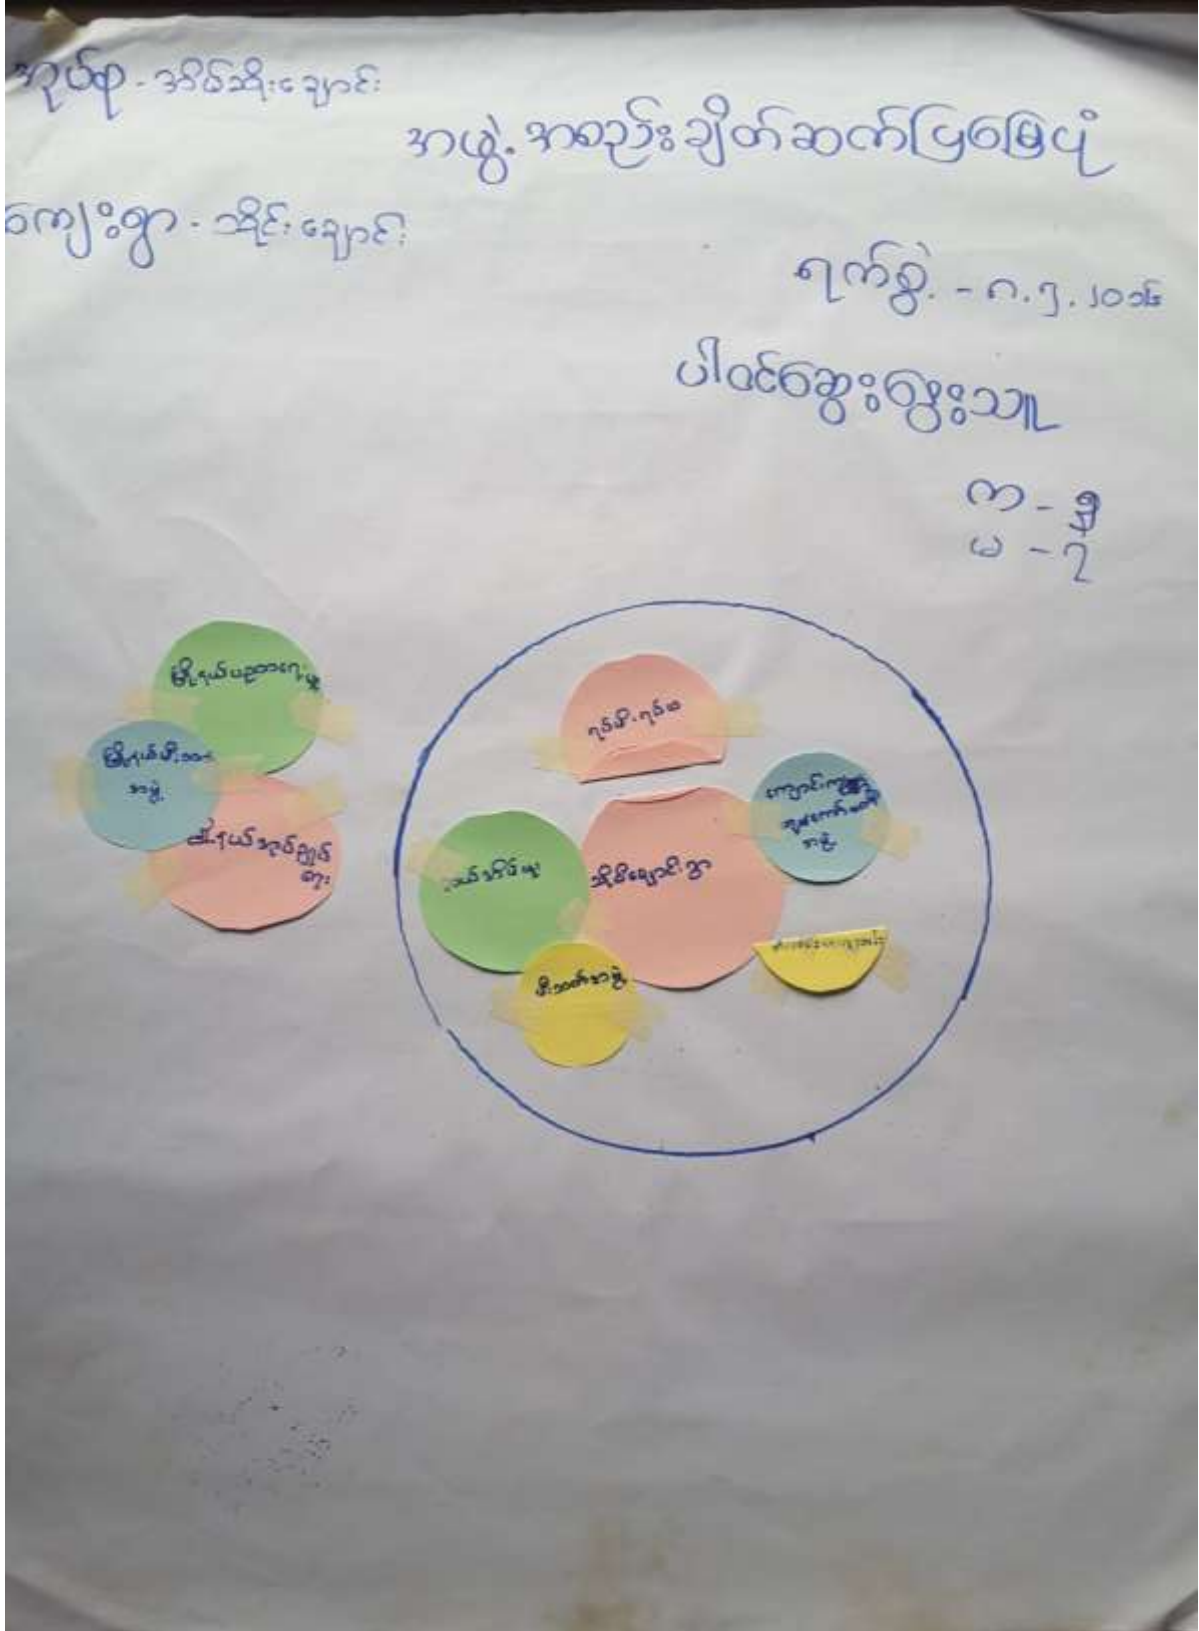 အုပ်စု - အိမ်ဆိုးချောင်း
အဖွဲ့အစည်းချိတ်ဆက်ပြမြေပုံ
ကျေးရွာ - သိုင်းချောင်း
ရက်စွဲ - ၈.၇.၂၀၁၆
ပါဝင်ဆွေးနွေးသူ
က - ၅
မ - ၇
မြို့နယ်ပညာရေးမှူး
မြို့နယ်မီးသတ်
အဖွဲ့
မြို့နယ်အုပ်ချုပ်
ရေး
ရပ်မိရပ်ဖ
ကျောင်း
အဖွဲ့
ဆယ်အိမ်မှူး
မီးသတ်အဖွဲ့